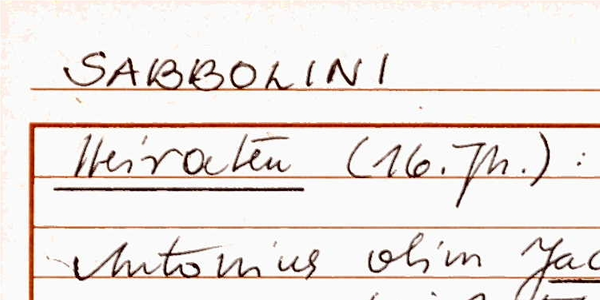 SABBOLINI
Heiraten (16. Jh.) :
Antonius olim Jac